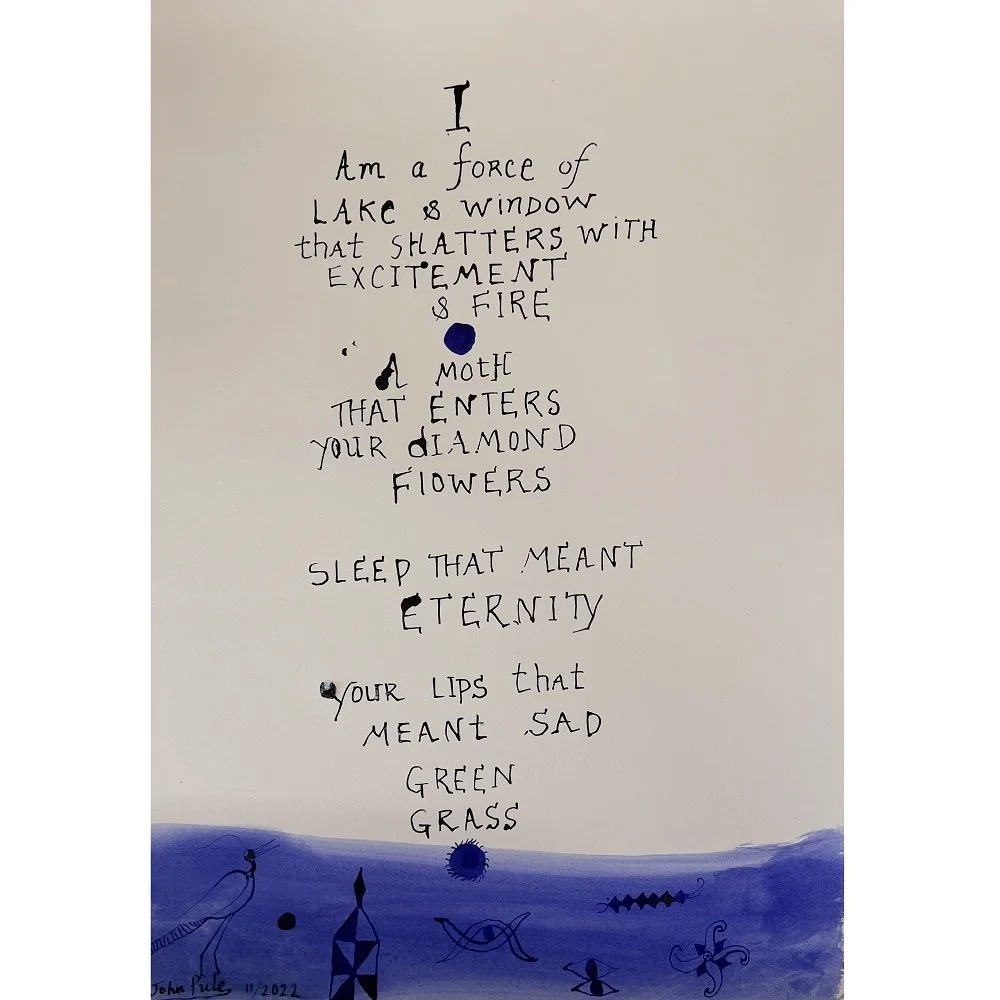 I
Am a force of
LAKE & WINDOW
that SHATTERS WITH
EXCITEMENT
& FIRE
A MOTH
THAT ENTERS
YOUR dIAMOND
FlOWERS
SLEEP THAT MEANT
ETERNITY
YOUR LIPS that
MEANt SAD
GREEN
GRASS
John Pule 11/2022